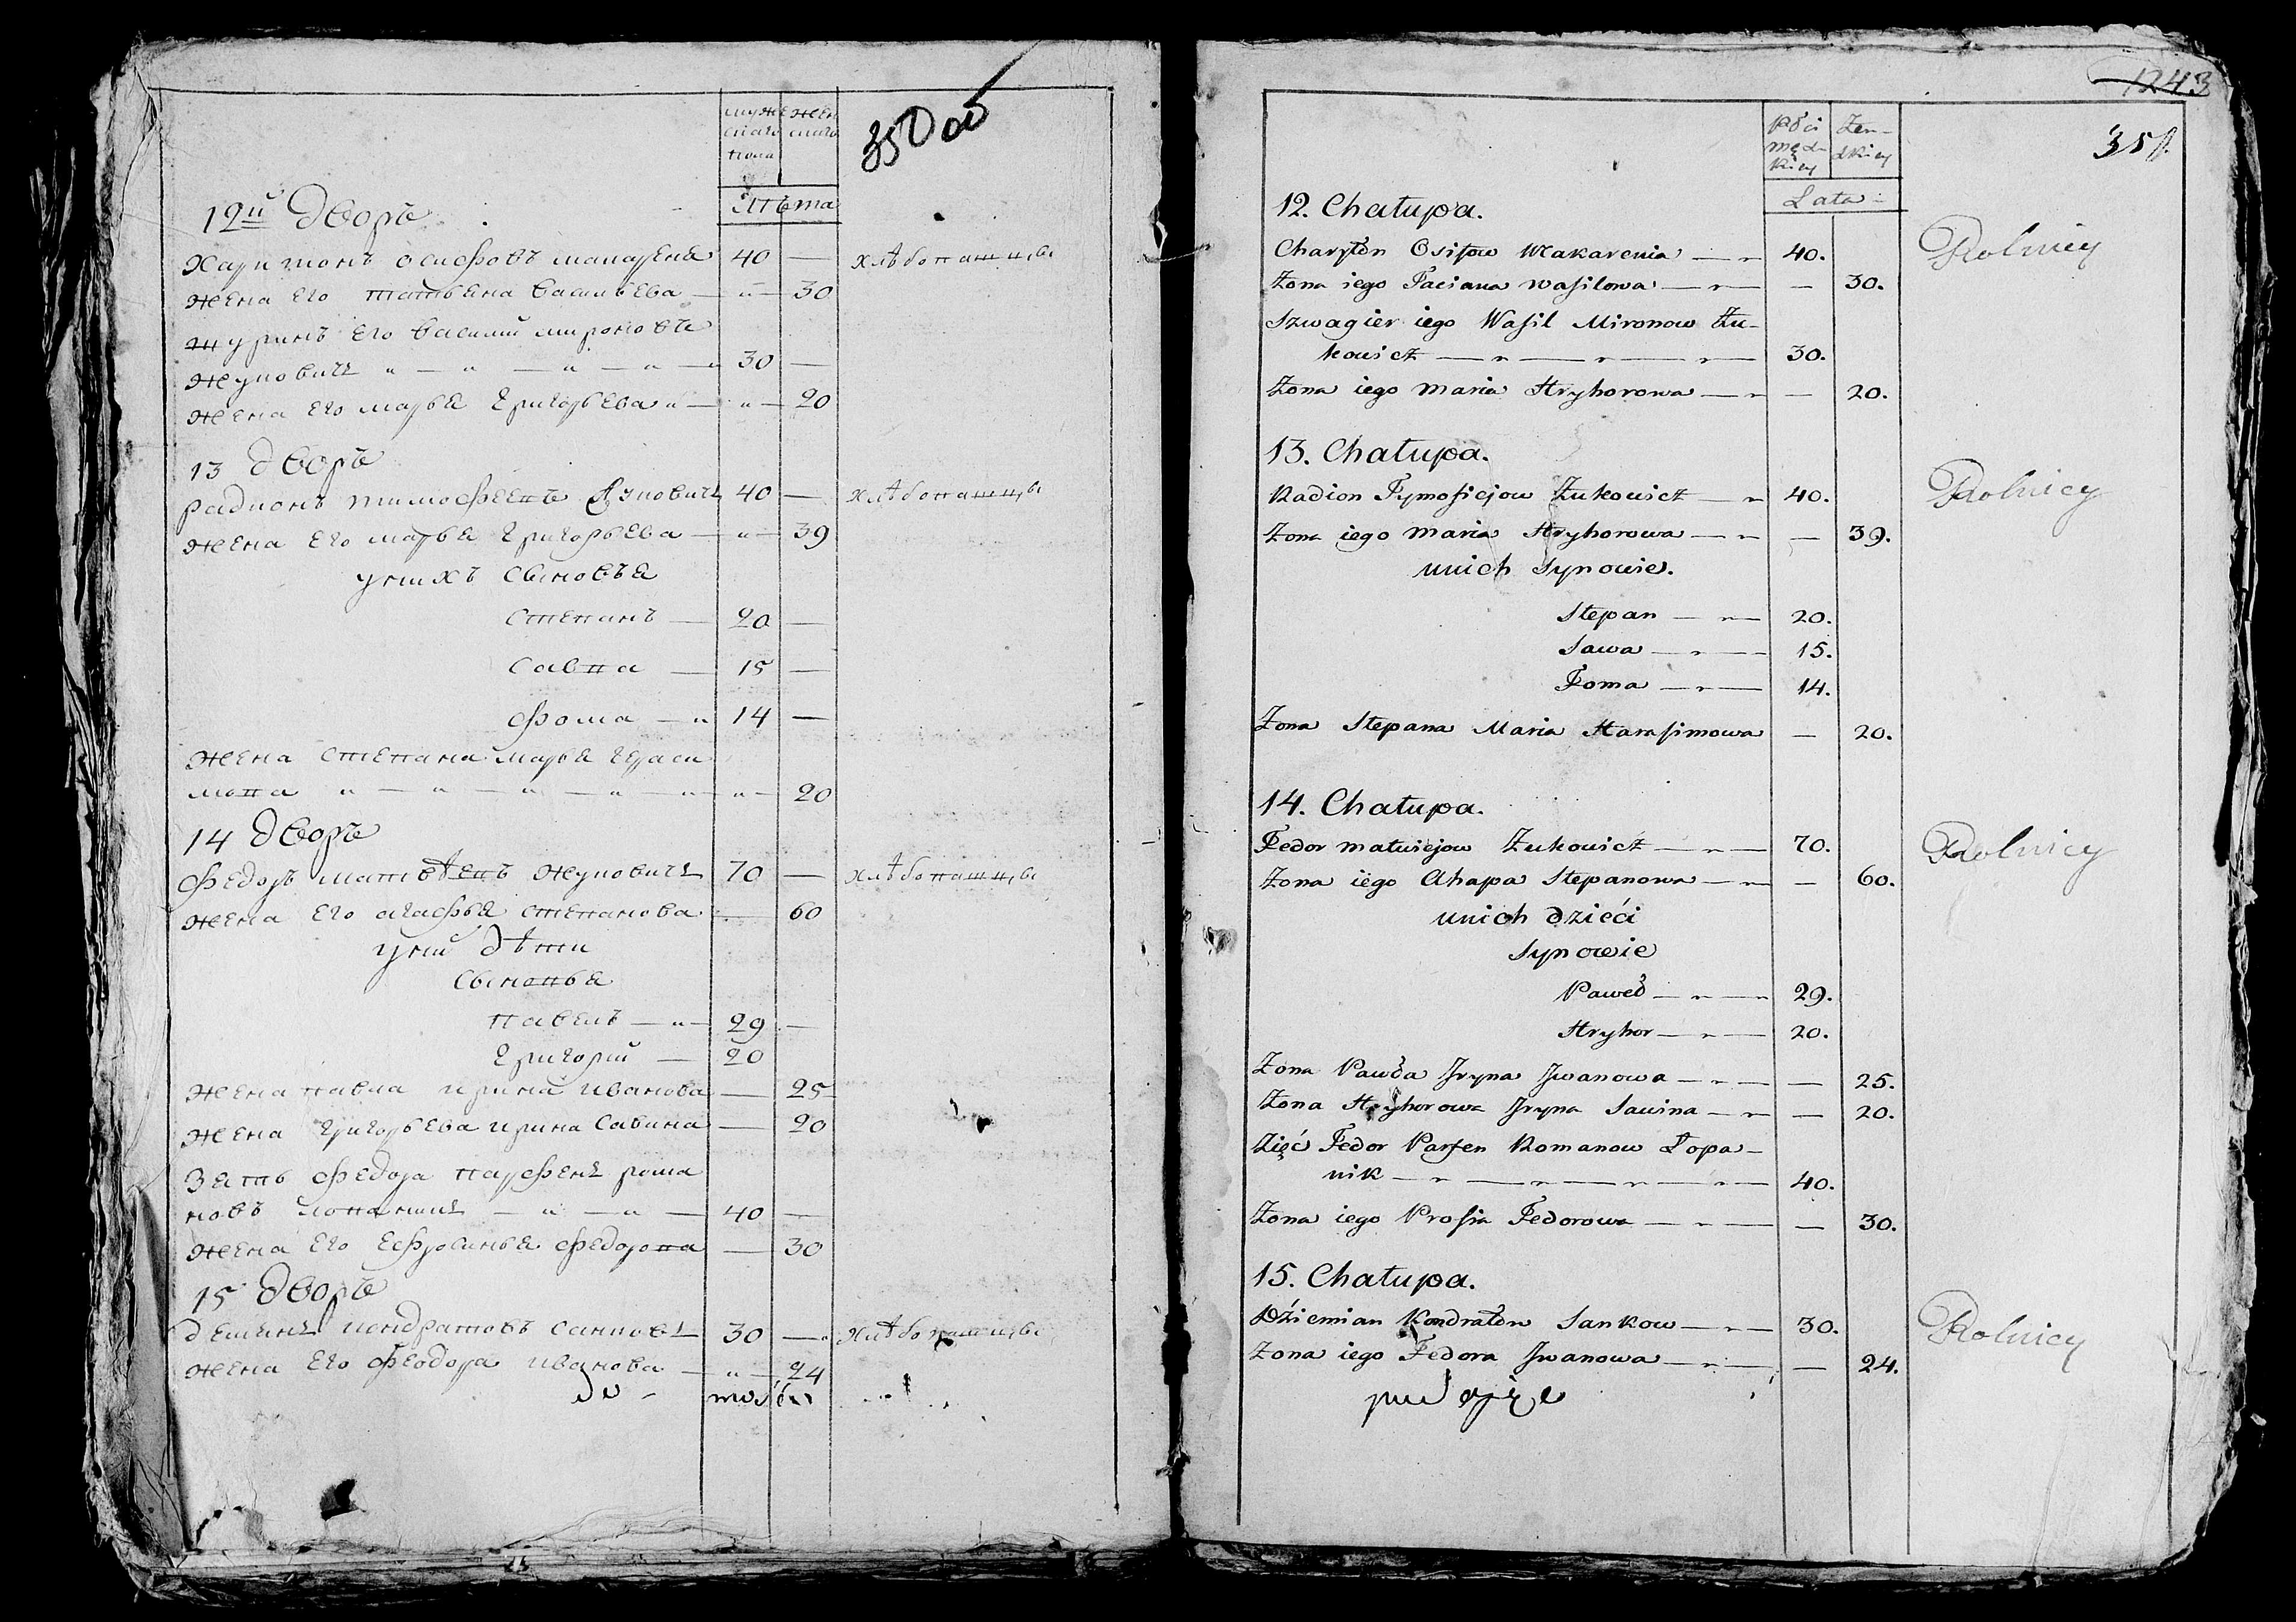 мужескаго пола
женскаго
350 об
Лѣта
12й Дворъ
Харитонъ осиповъ макареня 40 — хлѣбопашцы
жена его татьяна васильева — „ — 30
шуринъ его василий мироновъ
жуковичъ „ — „ — „ — „ — „ 30 —
жена его марья григорьева „ — „ — 20
13 Дворъ
радионъ тимофеевъ жуковичъ 40 — хлѣбопашцы
жена его марья григорьева — „ — 39
у нихъ сыновья
степанъ — 20 —
савва — 15 —
фома — „ 14 —
жена степана марья гераси
мова „ — „ — „ — „ — „ „ — 20
14 Дворъ
федоръ матвѣевъ жуковичъ 70 — хлѣбопашцы
жена его агафья степанова — 60
у них дѣти
сыновья
павелъ — „ — 29 —
григорий — 20
жена павла ирина иванова — 25
жена григорьева ирина савина — 20
зять федора парфенъ рома
новъ лопаникъ — „ — „ — 40 —
жена его ефросинья федорова — 30
15 Дворъ
демьянъ кондратовъ санковъ 30 — „ хлѣбопашцы
жена его феодора иванова — „ — 24
1243
Płci męzkiey
Żenskiey
351.
Lata
12. Chałupa.
Charyton Osipow Makarenia — „ 40. Rolnicy
Żona iego Taciana Wasilowa — „ — — 30.
Szwagier iego Wasil Mironow Żu-
kowicz — „ — „ — „ — 30.
Żona iego Maria Hryhorowa — „ — 20.
13. Chałupa.
Radion Tymofiejow Żukowicz — „ 40. Rolnicy
Żona iego Maria Hryhorowa — „ — 39.
u nich Synowie.
Stepan — „ — 20.
Sawa — „ — 15.
Foma — „ — 14.
Żona Stepana Maria Harasimowa — 20.
14. Chałupa.
Fedor Matwiejow Żukowicz — „ — 70. Rolnicy
Żona iego Ahapa Stepanowa — „ — — 60.
u nich dzieći
Synowie
Paweł — „ — „ 29.
Hryhor — „ — 20.
Żona Pawła Jryna Jwanowa — „ — — 25.
Żona Hryhorowa Jryna Sawina — „ — 20.
Zięć Fedor Parfen Romanow Łopa-
nik — „ — „ — „ — „ — 40.
Żona iego Prosia Fedorowa — „ — — 30.
15. Chałupa.
Dźiemian Kondratow Sankow — „ — 30. Rolnicy
Żona iego Fedora Jwanowa — „ — — 24.